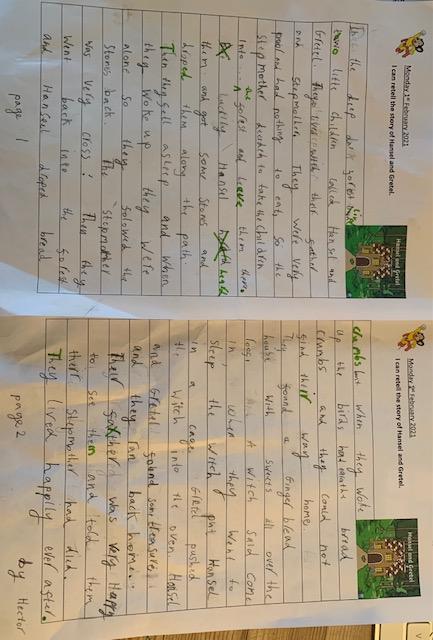 Monday 1st February 2021
I can retell the story of Hansel and Gretel.
Hansel and Gretel
the deep dark forest
little children called Hansel and
Gretel. They lived with their father
and stepmother. They were very
poor and had nothing to eat, so the
Stepmother decided to take the children
into the forest and leave them there.
lucelly Hansel heard
them and got some Stons and
droped them along the path.
Then they fell asleep and when
they woke up they were
alone so they folowed the
Stons back. The Stepmother
was very cross! Then they
went back into the forest
and Hansel droped bread
page 1
Monday February 2021
I can retell the story of Hansel and Gretel.
Hansel and Gretel
crumbs but when they woke
up the birds had the bread
crumbs and they could not
find their way home.
They found a Ginger bread
house with sweets all over the
A witch Said Come
in when they went to
sleep the witch put Hansel
in a cage. Gretel pushd
the witch into the oven. Hansel
and Gretel found som treasure
and they ran back home.
Their father was very Happy
to see them and told them
there Stepmother had died.
They lived happily ever after.
page 2
by Hector